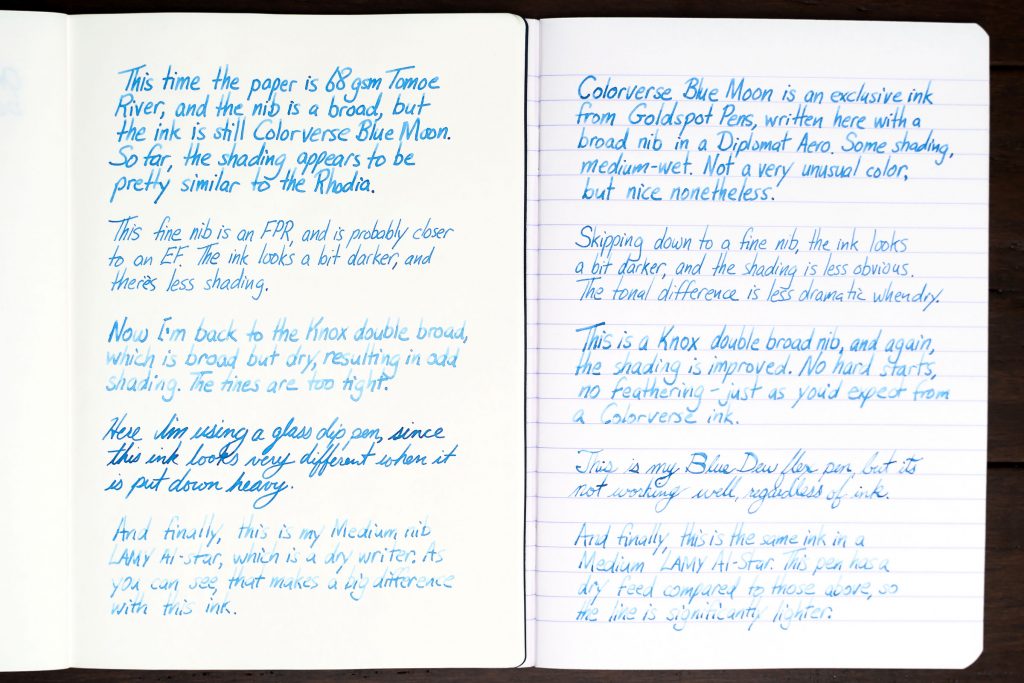 This time the paper is 68 gsm Tomoe
River, and the nib is a broad, but
the ink is still Colorverse Blue Moon.
So far, the shading appears to be
pretty similar to the Rhodia.
This fine nib is an FPR, and is probably closer
to an EF. The ink looks a bit darker, and
there's less shading.
Now I'm back to the Knox double broad,
which is broad but dry, resulting in odd
shading. The tines are too tight.
Here I'm using a glass dip pen, since
this ink looks very different when it
is put down heavy.
And finally, this is my Medium nib
LAMY Al-Star, which is a dry writer. As
you can see, that makes a big difference
with this ink.
Colorverse Blue Moon is an exclusive ink
from Goldspot Pens, written here with a
broad nib in a Diplomat Aero. Some shading,
medium-wet. Not a very unusual color,
but nice nonetheless.
Skipping down to a fine nib, the ink looks
a bit darker, and the shading is less obvious.
The tonal difference is less dramatic when dry.
This is a Knox double broad nib, and again,
the shading is improved. No hard starts,
no feathering - just as you'd expect from
a Colorverse ink.
This is my Blue Dew flex pen, but it's
not working well, regardless of ink.
And finally, this is the same ink in a
Medium LAMY Al-Star. This pen has a
dry feed compared to those above, so
the line is significantly lighter.